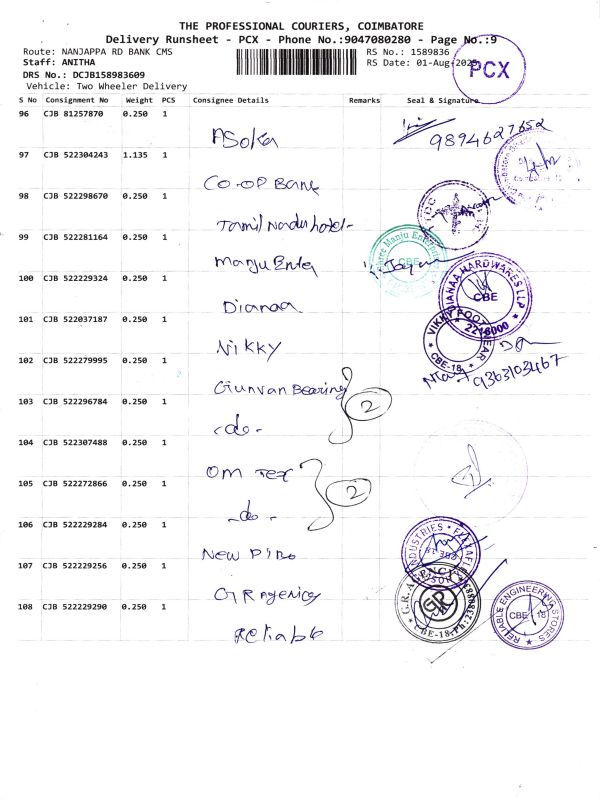 THE PROFESSIONAL COURIERS, COIMBATORE
Delivery Runsheet - PCX - Phone No.:9047080280 - Page No.:9
Route: NANJAPPA RD BANK CMS RS No.: 1589836
Staff: ANITHA RS Date: 01-Aug-2025
DRS No.: DCJB158983609
Vehicle: Two Wheeler Delivery
PCX
S No Consignment No Weight PCS Consignee Details Remarks Seal & Signature
96 CJB 81257870 0.250 1
ASoka 9894627652
97 CJB 522304243 1.135 1
CO-OP Bank
98 CJB 522298670 0.250 1
Tamil Nadu hotel-
99 CJB 522281164 0.250 1
Manju Enter
Shree Manju Enterprises CBE
100 CJB 522229324 0.250 1
Dianaa
DIANAA HARDWARES LLP CBE 2216000
101 CJB 522037187 0.250 1
Nikky
VIKKY FOOTWEAR CBE-18
102 CJB 522279995 0.250 1
Gunvan Bearing 9363103467
103 CJB 522296784 0.250 1
-do- 2
104 CJB 522307488 0.250 1
OM Tex
105 CJB 522272866 0.250 1
-do- 2
106 CJB 522229284 0.250 1
New Piro
INDUSTRIES
107 CJB 522229256 0.250 1
GR agency
G.R. CBE-18
108 CJB 522229290 0.250 1
Reliable
RELIABLE ENGINEERING STORES CBE 18